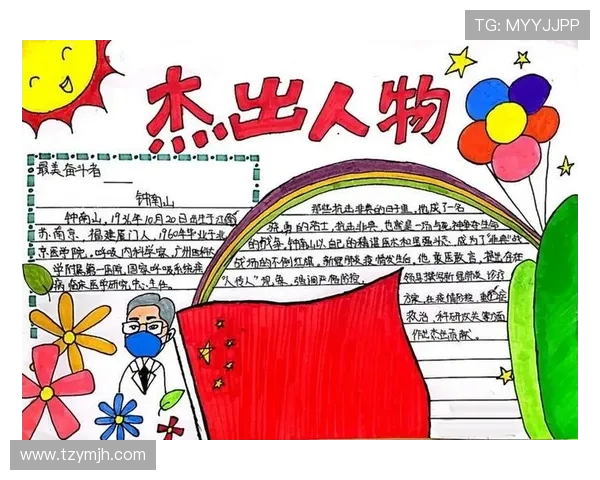 TG: MYYJJPP
杰出人物
最美奋斗者
——钟南山
钟南山，1936年10月20日出生于江苏
南京，福建厦门人，1960年毕业于北
京医学院，呼吸内科学家，广州医科大
学附属第一医院，国家呼吸系统疾
病临床医学研究中心主任。
那些抗击非典的日子里，他成了一名
勇的战士，抗击非典，也就是一场与死神争夺生命
的战争，钟南山以自己的精湛医术和坚强斗志，成为了"非典"
战场的不倒红旗，新冠肺炎疫情发生后，他敢医敢言，提出存在
"人传人"现象，强调严格防控，
领导撰写新冠肺炎诊疗
方案，在疫情防控、重症
救治、科研攻关等方面
作出杰出贡献。
www.tzymjh.com